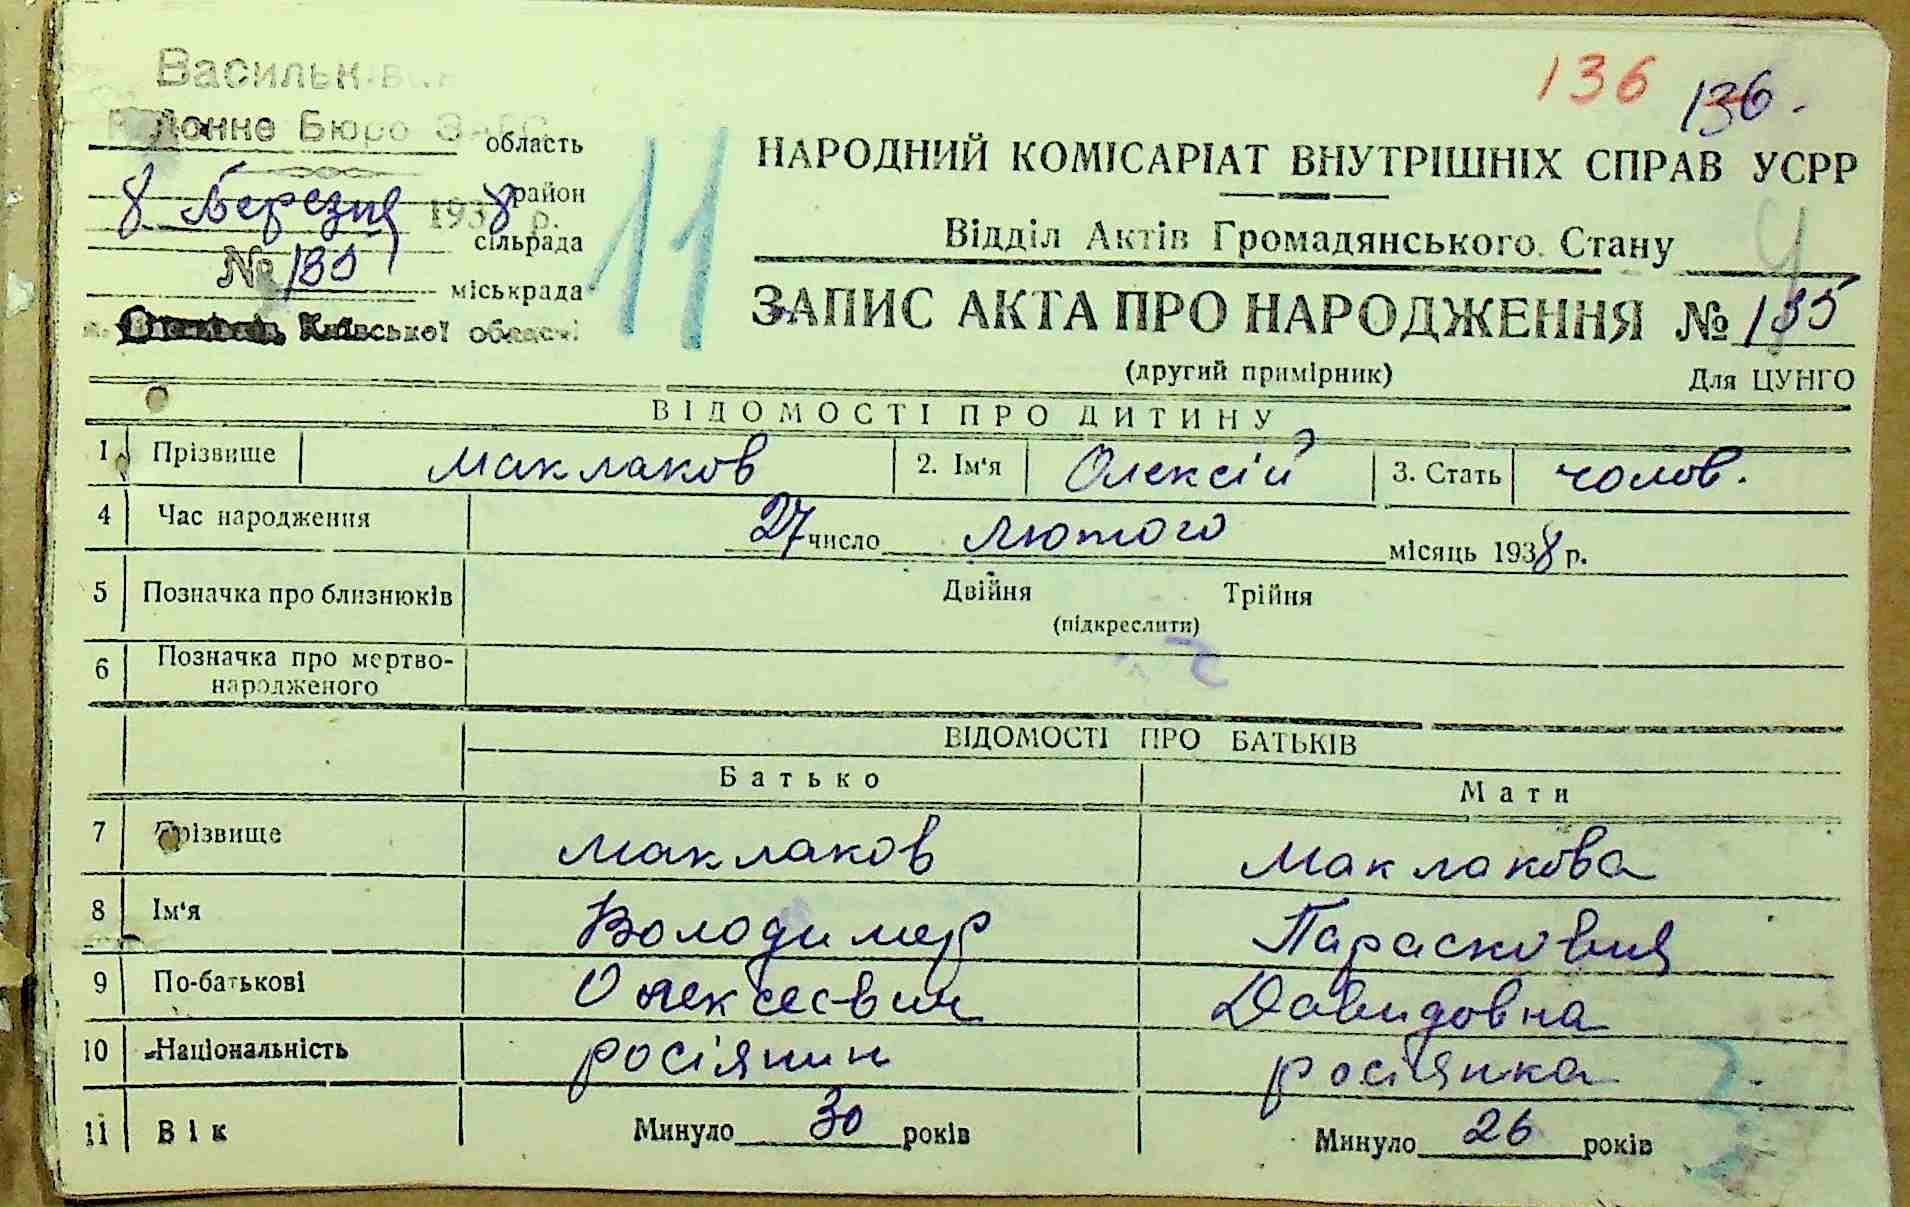 136 136.
Районне Бюро ЗАГС
область
район
8 Березня 1938 р.
сільрада
№ 135
міськрада
Київської області
11
НАРОДНИЙ КОМІСАРІАТ ВНУТРІШНІХ СПРАВ УСРР
Відділ Актів Громадянського Стану
ЗАПИС АКТА ПРО НАРОДЖЕННЯ № 135
(другий примірник) Для ЦУНГО
ВІДОМОСТІ ПРО ДИТИНУ
1 Прізвище Маклаков 2. Ім'я Олексій 3. Стать чолов.
4 Час народження 27 число лютого місяць 1938 р.
5 Позначка про близнюків Двійня Трійня
(підкреслити)
6 Позначка про мертво-
народженого
ВІДОМОСТІ ПРО БАТЬКІВ
Батько Мати
7 Прізвище Маклаков Маклакова
8 Ім'я Володимер Парасковия
9 По-батькові Олексєєвич Давидовна
10 Національність росіянин росіянка
11 Вік Минуло 30 років Минуло 26 років